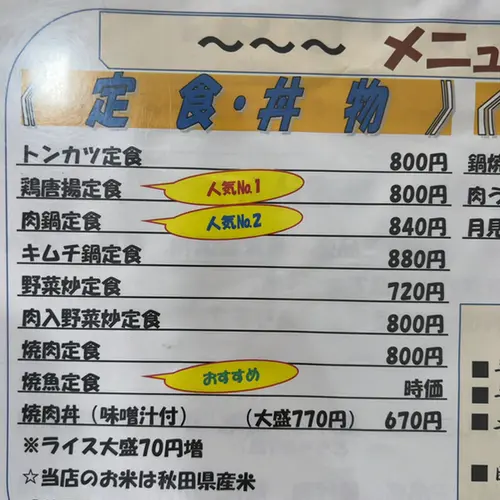 ～～～ メニュ
定食・丼物
トンカツ定食 800円
鶏唐揚定食 人気No.1 800円
肉鍋定食 人気No.2 840円
キムチ鍋定食 880円
野菜炒定食 720円
肉入野菜炒定食 800円
焼肉定食 800円
焼魚定食 おすすめ 時価
焼肉丼（味噌汁付） （大盛770円） 670円
※ライス大盛70円増
☆当店のお米は秋田県産米
鍋焼
肉う
月見